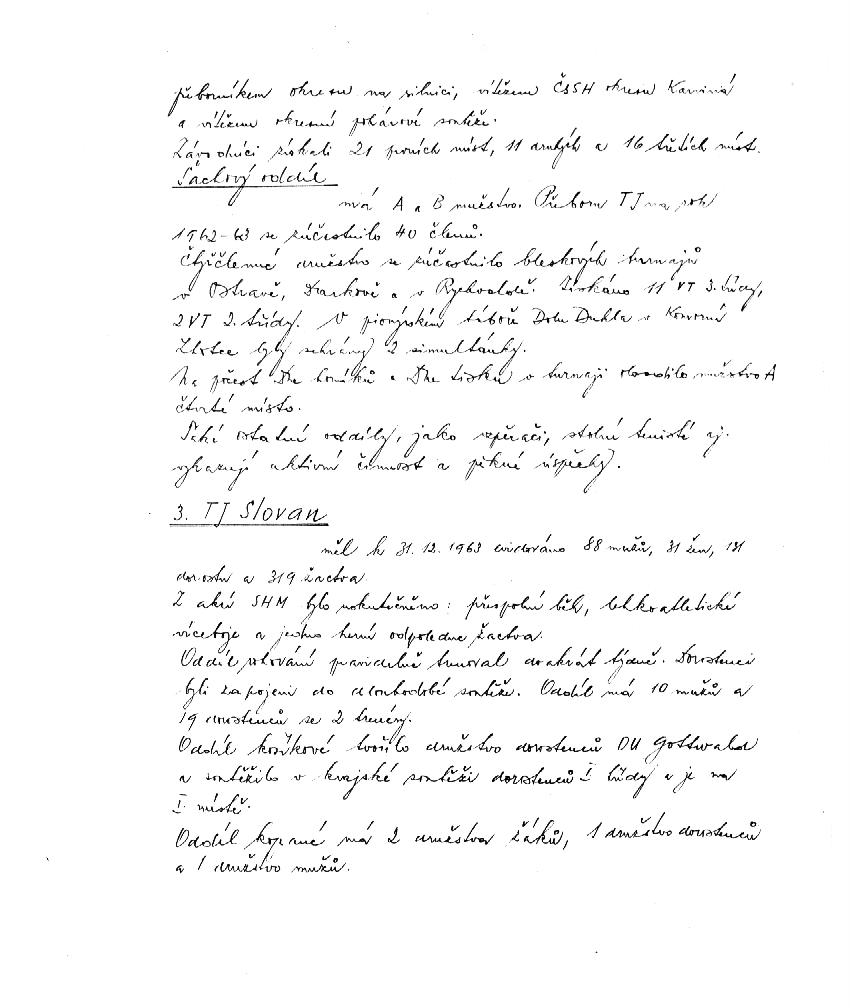 přeborníkem okresu na silnici, vítězem ČSSH okresu Karviná
a vítězem okresní pohárové soutěže.
Závodníci získali 21 prvních míst, 11 druhých a 16 třetích míst.
Šachový oddíl
má A a B mužstvo. Přeboru TJ na rok
1962-63 se zúčastnilo 40 členů.
Čtyřčlenné družstvo se zúčastnilo bleskových turnajů
v Ostravě, Darkově a v Rychvaldě. Získáno 11 VT 3. třídy,
2 VT 2. třídy. V pionýrském táboře Dolu Dukla v
byly sehrány 2 simultánky.
Na počest Dne horníků a Dne tisku v turnaji obsadilo mužstvo A
čtvrté místo.
Také ostatní oddíly, jako vzpěrači, stolní tenisté aj.
vykazují aktivní činnost a pěkné úspěchy.
3. TJ Slovan
měl k 31. 12. 1963 evidováno 88 mužů, 31 žen, 131
dorostu a 319 žactva
Z akcí SHM bylo uskutečněno: přespolní běh, lehkoatletické
víceboje a jedno herní odpoledne žactva.
Oddíl rohování pravidelně trénoval dvakrát týdně. Dorostenci
byli zapojeni do dlouhodobé soutěže. Oddíl má 10 mužů a
19 dorostenců se 2 trenéry.
Oddíl košíkové tvořilo družstvo dorostenců OU Gottwald
a soutěžilo v krajské soutěži dorostenců I třídy a je na
I místě.
Oddíl kopané má 2 družstva žáků, 1 družstvo dorostenců
a 1 družstvo mužů.